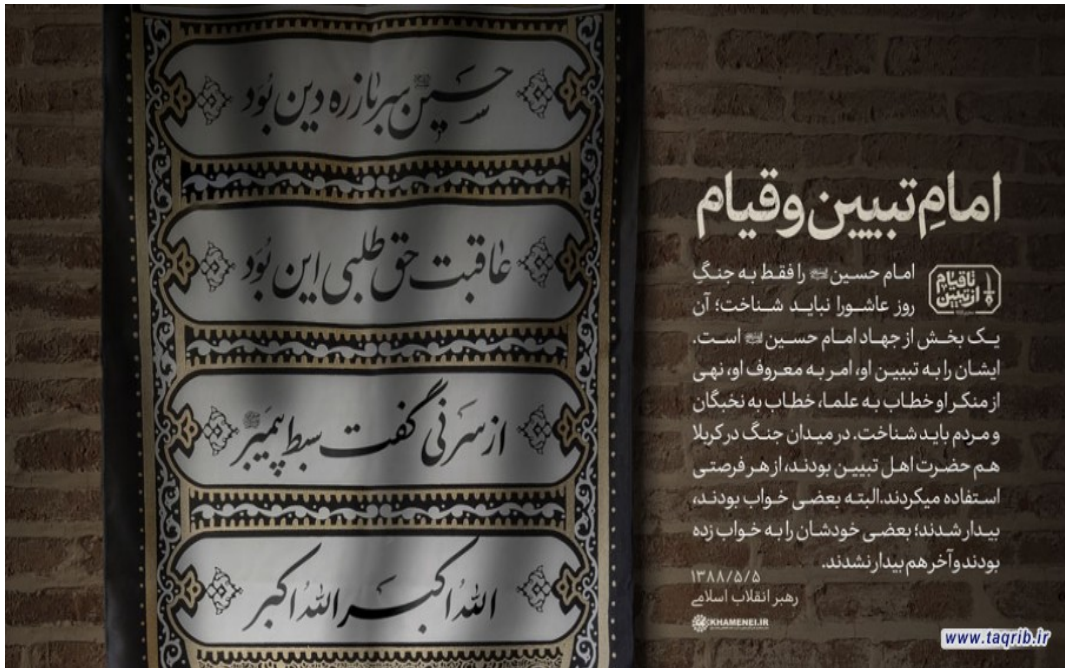 حسین سرباز ره دین بود
عاقبت حق طلبی این بود
از سر نی گفت سبط پیمبر
اللهُ اکبر اللهُ اکبر
امامِ تبیین و قیام
از تبیین
تا قیام
امام حسین را فقط به جنگِ
روز عاشورا نباید شناخت؛ آن
یک بخش از جهاد امام حسین است.
ایشان را به تبیین او، امر به معروف او، نهی
از منکر او خطاب به علما، خطاب به نخبگان
و مردم باید شناخت. در میدان جنگ در کربلا
هم حضرت اهل تبیین بودند، از هر فرصتی
استفاده میکردند.البته بعضی خواب بودند،
بیدار شدند؛ بعضی خودشان را به خواب زده
بودند و آخر هم بیدار نشدند.
۱۳۸۸/۵/۵
رهبر انقلاب اسلامی
KHAMENEI.IR
www.taqrib.ir